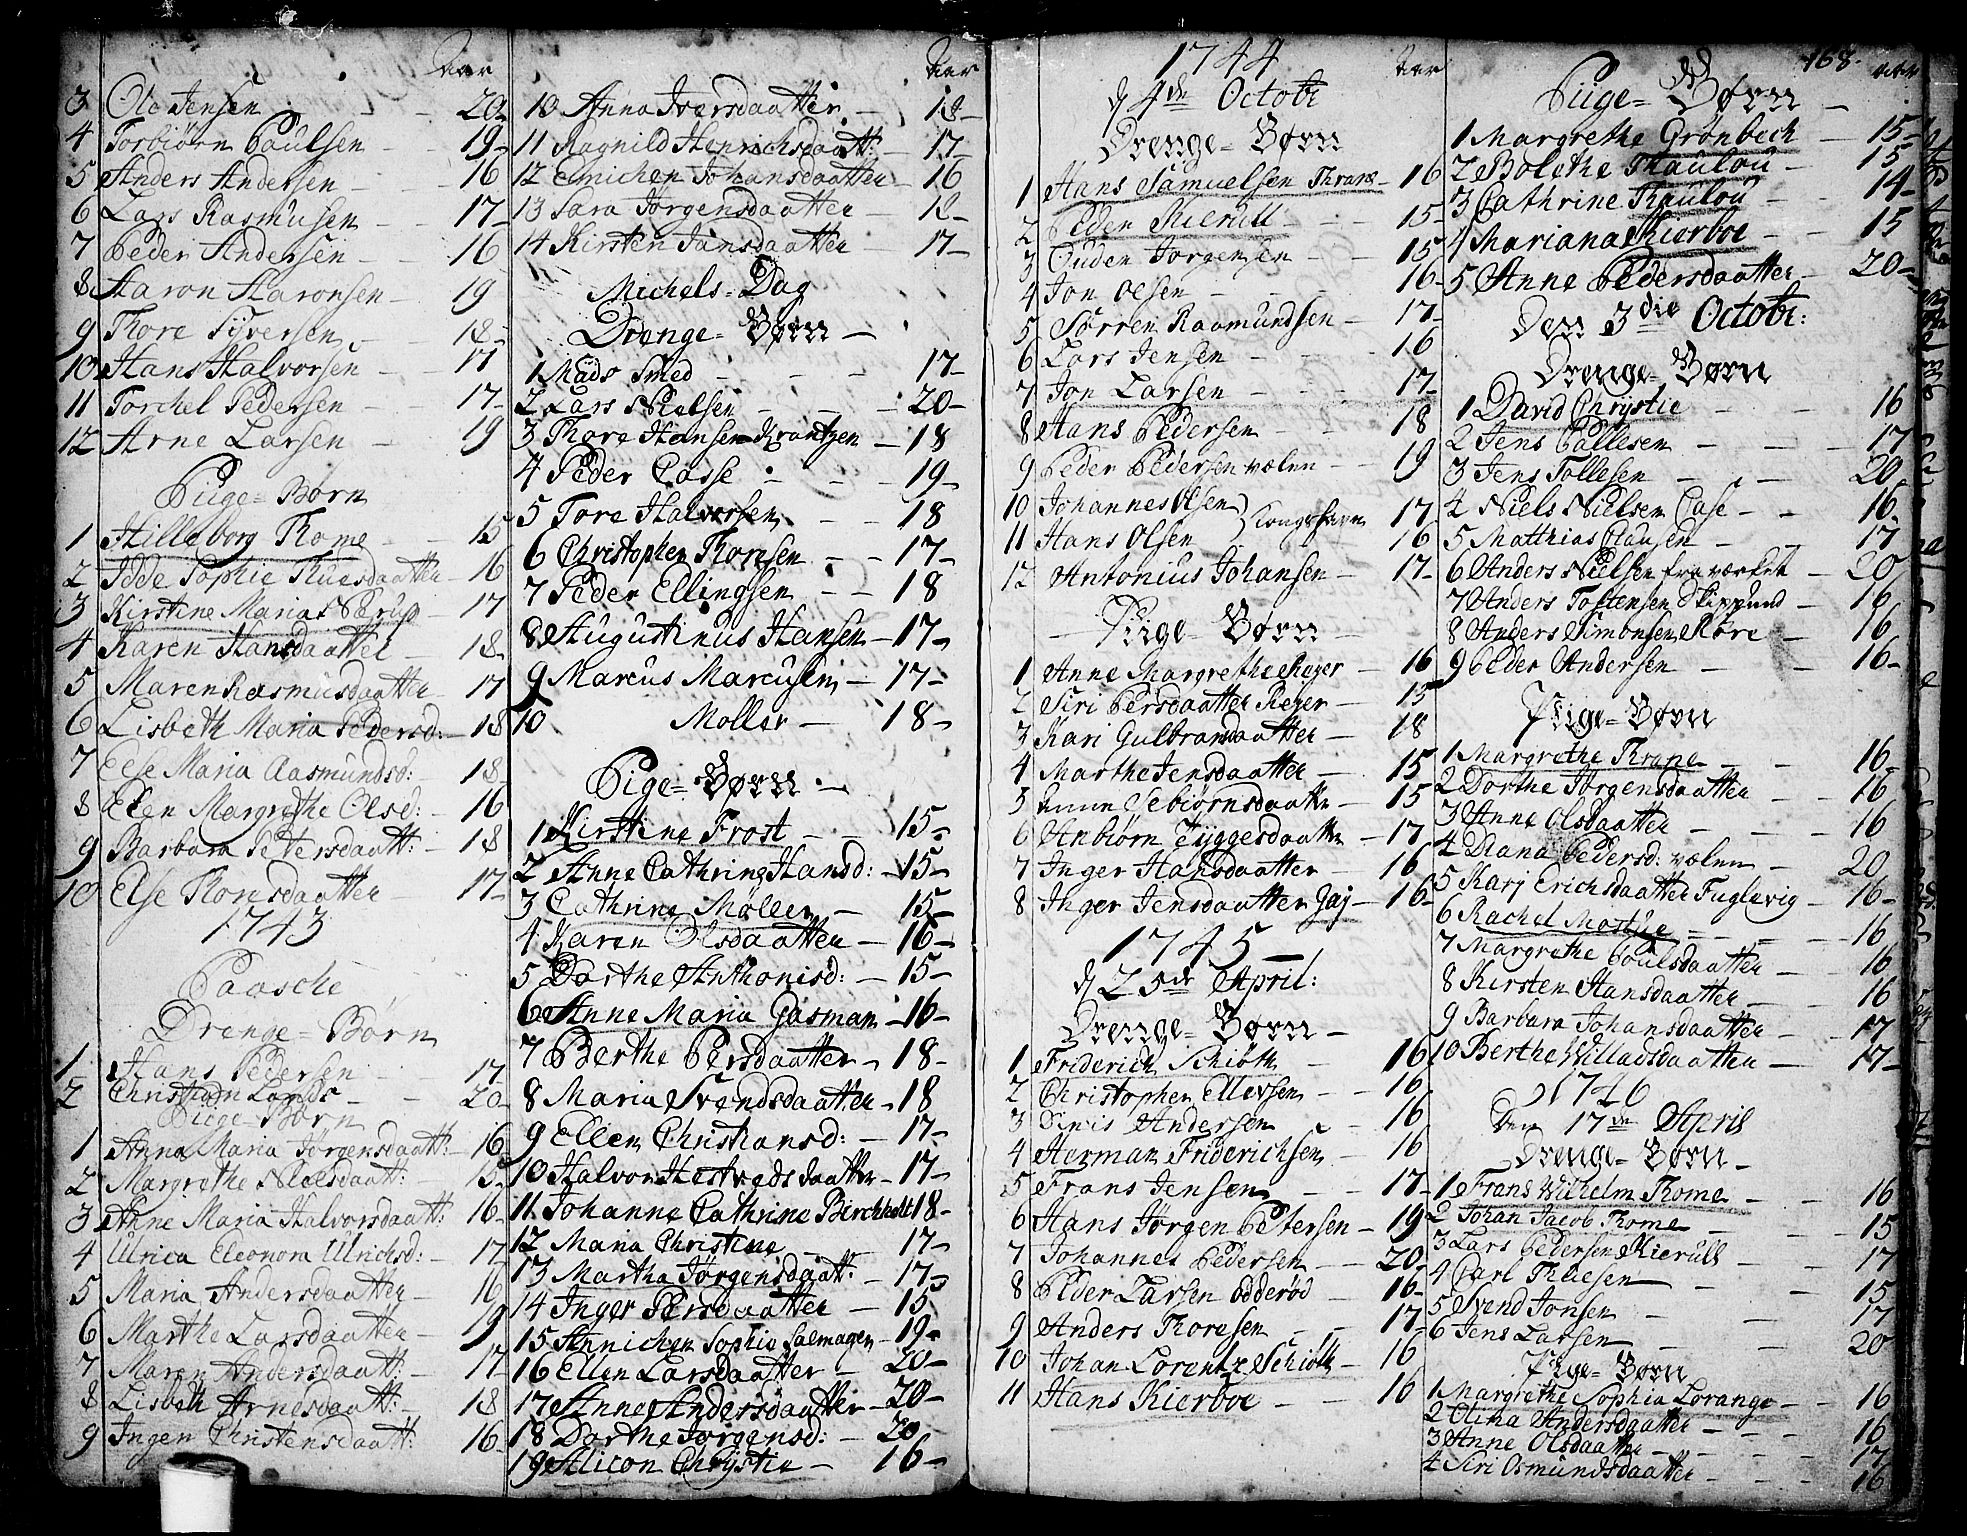 Aar
3 Ole Jensen - 20
4 Torbiørn Poulsen - 19
5 Anders Andersen - 16
6 Lars Rasmusen - 17
7 Peder Andersen - 16
8 Aaron Aaronsen - 19
9 Thore Siversen - 18
10 Hans Halvorsen - 17
11 Torchel Pedersen - 17
12 Arne Larsen - 19
Piige-Børn
1 Hilleborg Thome - 15
2 Idde Sophie Thuesdaatter - 16
3 Kirstine Maria - 17
4 Karen Hansdaatter - 18
5 Maren Rasmusdaatter - 17
6 Lisbeth Maria Pedersd: - 18
7 Else Maria Aasmundsd: - 18
8 Elen Margrethe Olsd: - 16
9 Barbara Petersdaatt: - 18
10 Else Thorsdaatter - 17
1743
Paasche
Drenge-Børn
1 Hans Pedersen - 17
2 Christian - 20
Piige-Børn
1 Anna Maria Jørgensdaatt: - 16
2 Margrethe Nielsdaatt: - 15
3 Anne Maria Halvorsdaatt: 16
4 Ulrica Eleonora Ulrichsd: - 17
5 Maria Andersdaatter - 16
6 Marthe Larsdaatter - 19
7 Maren Andersdaatt: - 17
8 Lisbeth Arnesdaatt: - 18
9 Ingen Christensdaatt: 16
Aar
10 Anna Iversdaatter - 18
11 Ragnild Henrichsdaatt: - 17
12 Emichen Johansdaatter - 16
13 Sara Jørgensdaatter - 18
14 Kirsten Jansdaatter - 17
Michels-Dag
Drenge-Børn
1 Mads Smed - 17
2 Lars Nielsen - 20
3 Thore Hansen Krantzen - 18
4 Peder Casse - 19
5 Tore Halvorsen - 18
6 Christopher Thoresen - 17
7 Peder Ellingsen - 18
8 Augustinus Hansen - 17
9 Marcus Marcusen - 17
10 Moller - 18
Pige-Børn
1 Kirstine Frost - 15
2 Anne Cathrine Hansd: - 15
3 Cathrine Møller - 15
4 Karen Olsdaatter - 16
5 Dorthe Anthonisd: - 15
6 Anne Maria Gasman - 16
7 Berthe Persdaatter - 18
8 Maria Svendsdaatter - 18
9 Ellen Christiansd: - 17
10 Halvor Hestvedsdaatter - 17
11 Johanne Cathrine Birchholt 18
12 Maria Christine - 17
13 Martha Jørgensdaatt: - 17
14 Inger Persdaatter - 15
15 Annichen Sophia Salmagen - 19
16 Ellen Larsdaatter - 20
17 Anne Andersdaatter - 20
18 Dorthe Jørgensd: - 20
19 Alicon Chrystie - 16
1744 Aar
d 4de Octobr
Drenge-Børn
1 Hans Samuelsen Thrane - 16
2 Peder Kierull - 15
3 Ouden Jørgensen - 15
4 Jon Olsen - 16
5 Sørren Raamundsen - 17
6 Lars Jensen - 16
7 Jon Larsen - 17
8 Hans Pedersen - 18
9 Peder Pedersen vælen - 19
10 Johannes Olsen) 17
11 Hans Olsen) Kongshavn 16
12 Antonius Johansen - 17
Piige-Børn
1 Anne Margrethe Reyer - 16
2 Siri Persdaatter Reyer - 15
3 Kari Gulbransdaatter - 18
4 Marthe Jensdaatter - 15
5 Sebiørnsdaatter - 15
6 Anbiørn Tyggesdaatter - 17
7 Inger Hansdaatter - 16
8 Inger Jensdaatter Jaj - 16
1745
d 25de April:
Drenge-Børn
1 Friderich Schiøth - 16
2 Christopher Ellevsen - 16
3 Dinis Andersen - 16
4 Herman Friderichsen - 16
5 Frans Jensen - 17
6 Hans Jørgen Petersen - 19
7 Johannes Pedersen - 20
8 Peder Larsen Odderød - 16
9 Anders Thoresen - 17
10 Johan Lorentz Schiøth - 16
11 Hans Kierboe - 16
168. Aar
Piige-Børn
1 Margrethe Grønbech - 15
2 Bolethe Thaulou - 15
3 Cathrine Thaulou - 14
4 Mariana Kierboe - 15
5 Anne Pedersdaatter - 20
Den 3die Octobr:
Drenge-Børn
1 David Chrystie - 16
2 Jens Pallesen - 17
3 Jens Tollesen - 20
4 Niels Nielsen Case - 16
5 Matthias Clausen - 17
6 Anders Nielsen fra værket - 20
7 Anders Tostensen Skippund - 16
8 Anders Simonsen Røre - 16
9 Peder Andersen - 16
Piige-Børn
1 Margrethe Thrane - 16
2 Dorthe Jørgensdaatter - 16
3 Anne Olsdaatter - 16
4 Diana Pedersd: vælen - 20
5 Karj Erichsdaatter Fuglevig - 16
6 Rachel Mostue - 16
7 Margrethe Poulsdaatter - 16
8 Kirsten Hansdaatter - 16
9 Barbara Johansdaatter - 17
10 Berthe Willadsdaatter - 17
1746
Den 17de April
Drenge-Børn
1 Frans Wilhelm Thome - 16
2 Johan Jacob Thome - 15
3 Lars Pedersen Kierull - 17
4 Carl Thuesen - 15
5 Svend Jonsen - 17
6 Jens Larsen - 20
Piige-Børn
1 Margrethe Sophia Lorange - 16
2 Olina Andersdaatter - 16
3 Anne Olsdaatter - 17
4 Siri Osmundsdaatter - 16